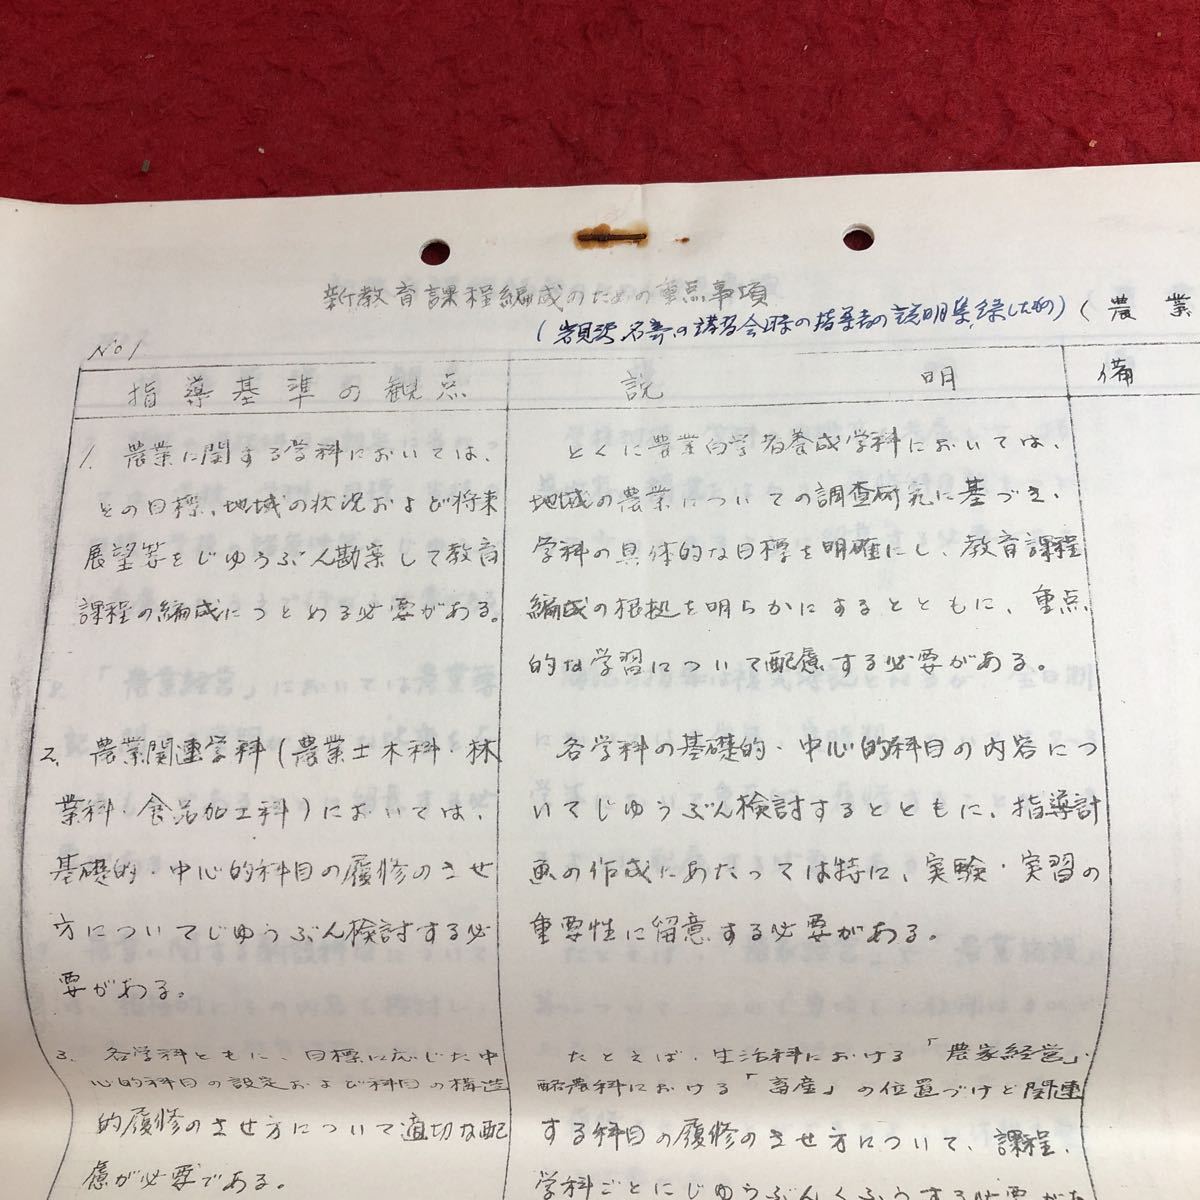 新教育課程編成のための重点事項
名寄の講習会時の指導者の説明集録したもの) (農業
No1
指導基準の観点 説明 備
1. 農業に関する学科においては、
その目標、地域の状況および将来
展望等をじゆうぶん勘案して教育
課程の編成につとめる必要がある。
とくに農業自学者養成学科においては、
地域の農業についての調査研究に基づき、
学科の具体的な目標を明確にし、教育課程
編成の根拠を明らかにするとともに、重点
的な学習について配慮する必要がある。
2. 農業関連学科(農業土木科・林
業科・食品加工科)においては、
基礎的・中心的科目の履修のさせ
方についてじゆうぶん検討する必
要がある。
各学科の基礎的・中心的科目の内容につ
いてじゆうぶん検討するとともに、指導計
画の作成にあたっては特に、実験・実習の
重要性に留意する必要がある。
3. 各学科ともに、目標に応じた中
心的科目の設定および科目の構造
的履修のさせ方について適切な配
慮が必要である。
たとえば、生活科における「農家経営」、
酪農科における「畜産」の位置づけと関連
する科目の履修のさせ方について、課程、
学科ごとにじゆうぶんくふうする必要があ